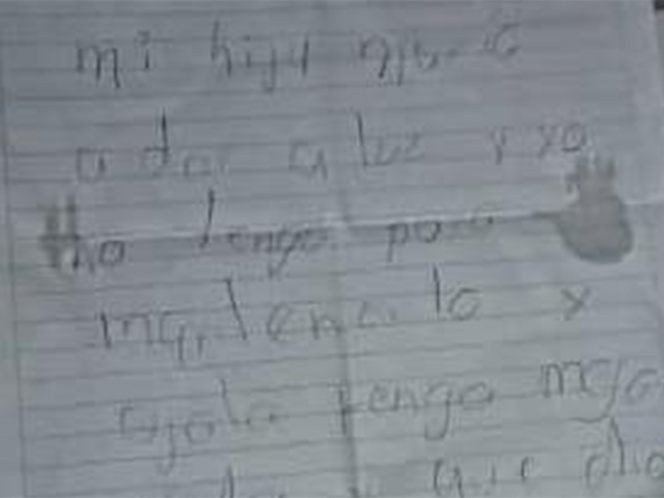 mi hija
a dar a luz y yo
no tengo para
mantenerlo y
ojala tenga mejo
que dio